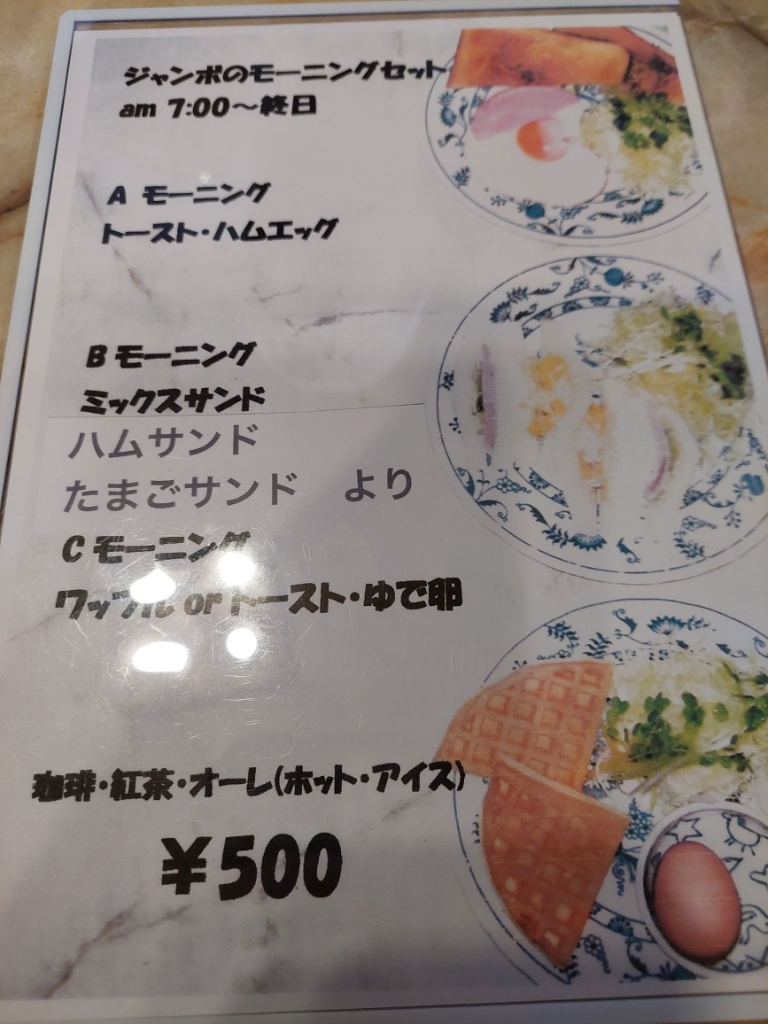 ジャンボのモーニングセット
am 7:00～終日
A モーニング
トースト・ハムエッグ
B モーニング
ミックスサンド
ハムサンド
たまごサンド　より
C モーニング
ワッフル or トースト・ゆで卵
珈琲・紅茶・オーレ(ホット・アイス)
￥500